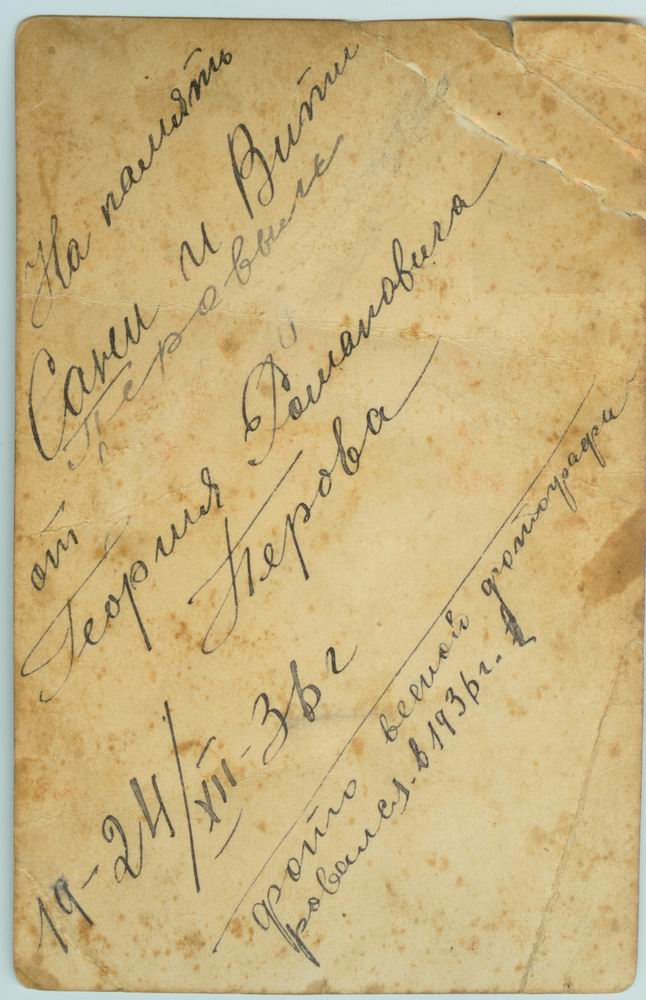 На память
Сани и Вити
Перовых
от
Георгия Романовича
Перова
19-24/XII-36 г
фото весной фотографи
ровался. в 1936 г.